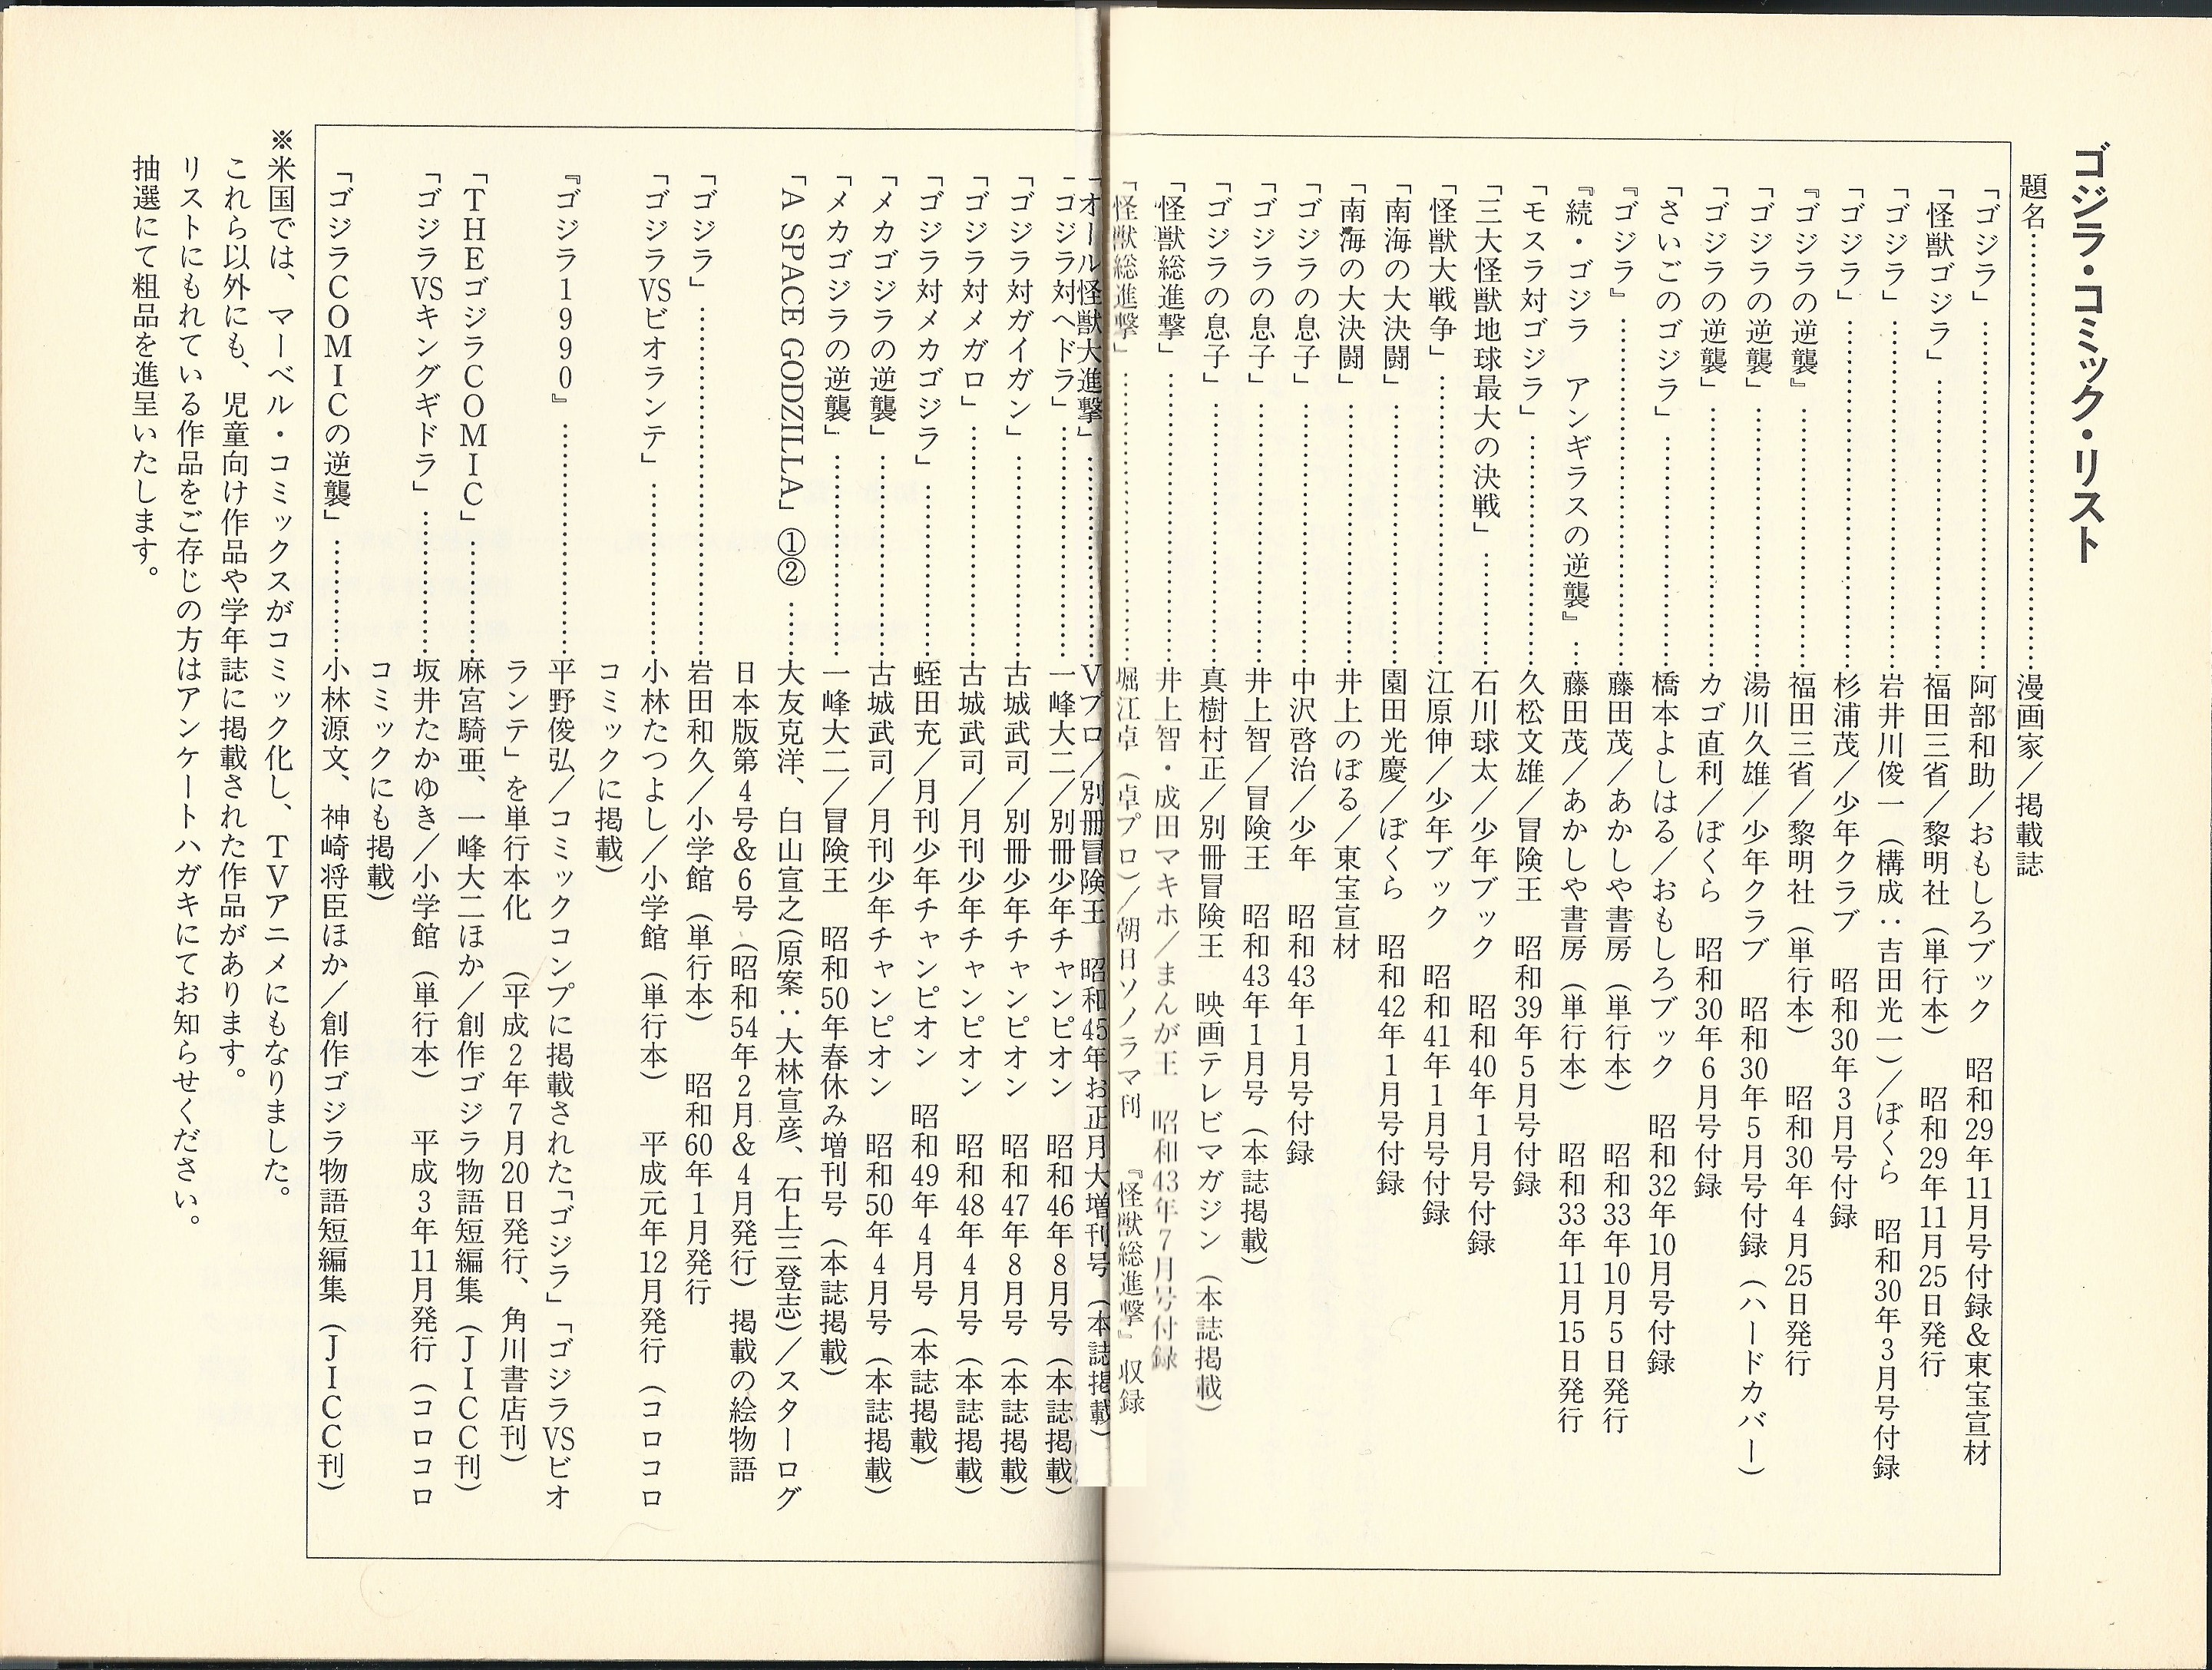 ゴジラ・コミック・リスト
題名……………………………………漫画家／掲載誌
「ゴジラ」……………………………阿部和助／おもしろブック　昭和29年11月号付録＆東宝宣材
「怪獣ゴジラ」………………………福田三省／黎明社（単行本）　昭和29年11月25日発行
「ゴジラ」……………………………岩井川俊一（構成：吉田光一）／ぼくら　昭和30年3月号付録
「ゴジラ」……………………………杉浦茂／少年クラブ　昭和30年3月号付録
『ゴジラの逆襲』……………………福田三省／黎明社（単行本）　昭和30年4月25日発行
「ゴジラの逆襲」……………………湯川久雄／少年クラブ　昭和30年5月号付録（ハードカバー）
「ゴジラの逆襲」……………………カゴ直利／ぼくら　昭和30年6月号付録
「さいごのゴジラ」…………………橋本よしはる／おもしろブック　昭和32年10月号付録
『ゴジラ』……………………………藤田茂／あかしや書房（単行本）　昭和33年10月5日発行
『続・ゴジラ　アンギラスの逆襲』…藤田茂／あかしや書房（単行本）　昭和33年11月15日発行
「モスラ対ゴジラ」…………………久松文雄／冒険王　昭和39年5月号付録
「三大怪獣地球最大の決戦」………石川球太／少年ブック　昭和40年1月号付録
「怪獣大戦争」………………………江原伸／少年ブック　昭和41年1月号付録
「南海の大決闘」……………………園田光慶／ぼくら　昭和42年1月号付録
「南海の大決闘」……………………井上のぼる／東宝宣材
「ゴジラの息子」……………………中沢啓治／少年　昭和43年1月号付録
「ゴジラの息子」……………………井上智／冒険王　昭和43年1月号（本誌掲載）
「ゴジラの息子」……………………真樹村正／別冊冒険王　映画テレビマガジン（本誌掲載）
「怪獣総進撃」………………………井上智・成田マキホ／まんが王　昭和43年7月号付録
「怪獣総進撃」………………………堀江卓（卓プロ）／朝日ソノラマ刊　『怪獣総進撃』収録
「オール怪獣大進撃」………………Vプロ／別冊冒険王　昭和45年お正月大増刊号（本誌掲載）
「ゴジラ対ヘドラ」…………………一峰大二／別冊少年チャンピオン　昭和46年8月号（本誌掲載）
「ゴジラ対ガイガン」………………古城武司／別冊少年チャンピオン　昭和47年8月号（本誌掲載）
「ゴジラ対メガロ」…………………古城武司／月刊少年チャンピオン　昭和48年4月号（本誌掲載）
「ゴジラ対メカゴジラ」……………蛭田充／月刊少年チャンピオン　昭和49年4月号（本誌掲載）
「メカゴジラの逆襲」………………古城武司／月刊少年チャンピオン　昭和50年4月号（本誌掲載）
「メカゴジラの逆襲」………………一峰大二／冒険王　昭和50年春休み増刊号（本誌掲載）
「A SPACE GODZILLA」①②……大友克洋、白山宣之（原案：大林宣彦、石上三登志）／スターログ
日本版第4号＆6号（昭和54年2月＆4月発行）掲載の絵物語
「ゴジラ」……………………………岩田和久／小学館（単行本）　昭和60年1月発行
「ゴジラVSビオランテ」……………小林たつよし／小学館（単行本）　平成元年12月発行（コロコロ
コミックに掲載）
『ゴジラ1990』……………………平野俊弘／コミックコンプに掲載された「ゴジラ」「ゴジラVSビオ
ランテ」を単行本化　（平成2年7月20日発行、角川書店刊）
「THEゴジラCOMIC」…………麻宮騎亜、一峰大二ほか／創作ゴジラ物語短編集（JICC刊）
「ゴジラVSキングギドラ」…………坂井たかゆき／小学館（単行本）　平成3年11月発行（コロコロ
コミックにも掲載）
「ゴジラCOMICの逆襲」…………小林源文、神崎将臣ほか／創作ゴジラ物語短編集（JICC刊）
※米国では、マーベル・コミックスがコミック化し、TVアニメにもなりました。
これら以外にも、児童向け作品や学年誌に掲載された作品があります。
リストにもれている作品をご存じの方はアンケートハガキにてお知らせください。
抽選にて粗品を進呈いたします。